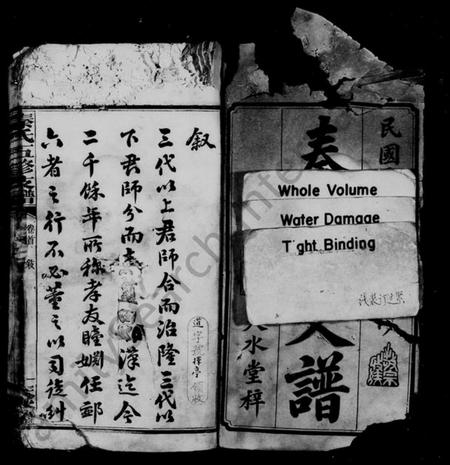 民國
秦
支譜
天水堂梓
Whole Volume
Water Damage
Tight Binding
叙
三代以上君師合而治隆三代以
下君師分而
漢迄今
二千餘年所称孝友睦婣任卹
六者之行不必董之以司徒糾
道字號擇亭領收
秦氏五修支譜
卷首
叙